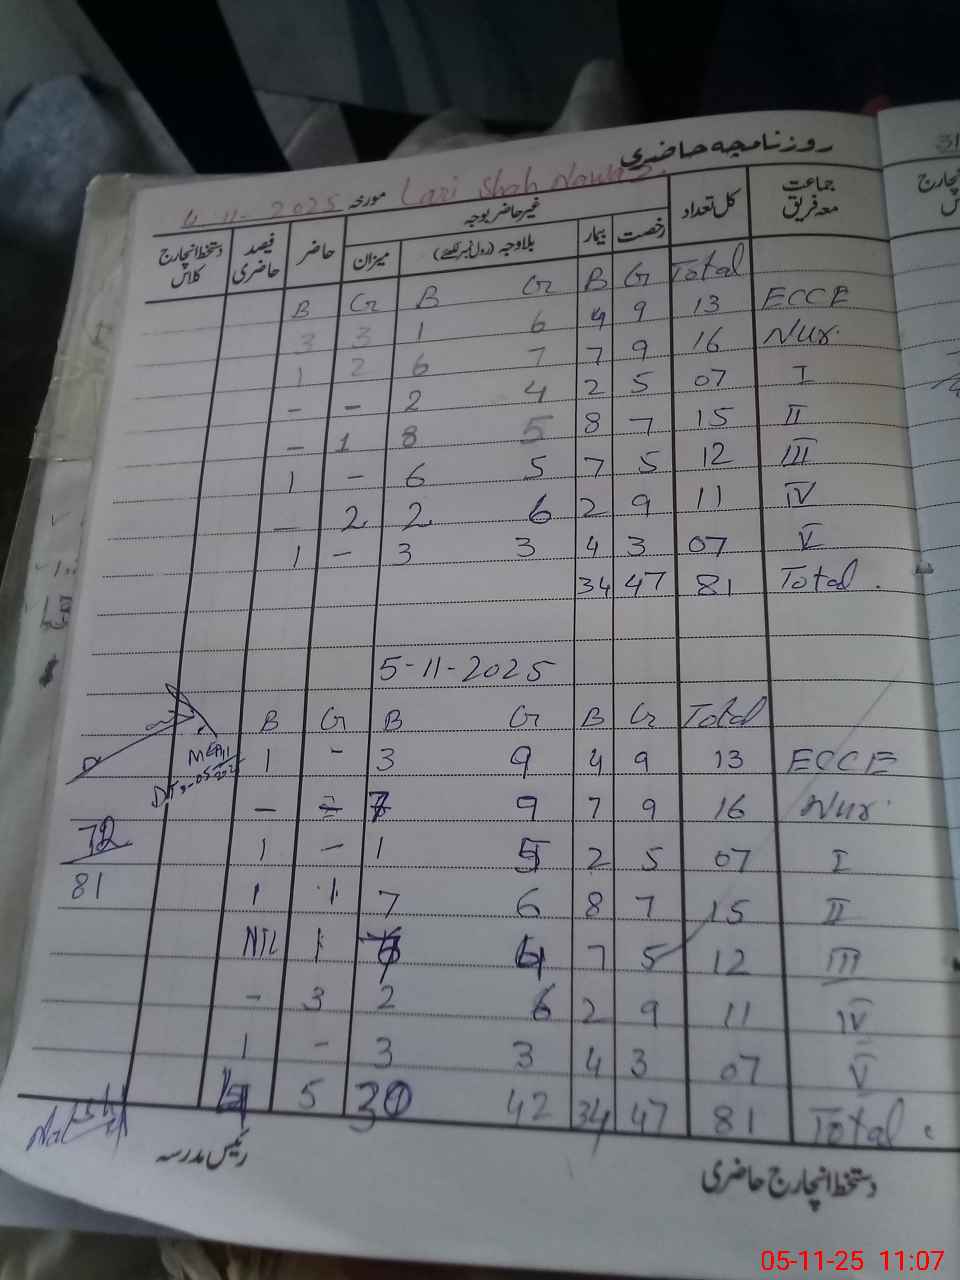 روزنامچہ حاضری
4-11-2025 مورخہ Lari Shah Nawaz.
جماعت معہ فریق | کل تعداد | غیر حاضر بوجہ | رخصت | بیمار | بلاوجہ (رول نمبر لکھئے) | میزان | حاضر | فیصد حاضری | دستخط انچارج کلاس
B G B G B G Total
3 3 1 6 4 9 13 ECCE
1 2 6 7 7 9 16 Nur.
- - 2 4 2 5 07 I
- 1 8 5 8 7 15 II
1 - 6 5 7 5 12 III
- 2 2 6 2 9 11 IV
1 - 3 3 4 3 07 V
34 47 81 Total.
5-11-2025
B G B G B G Total
1 - 3 9 4 9 13 ECCE
- - 7 9 7 9 16 Nur.
1 - 1 5 2 5 07 I
1 1 7 6 8 7 15 II
NIL 1 4 7 5 12 III
- 3 2 6 2 9 11 IV
1 - 3 3 4 3 07 V
5 30 42 34 47 81 Total.
MEA
72
81
رئیس مدرسہ
دستخط انچارج حاضری
05-11-25 11:07